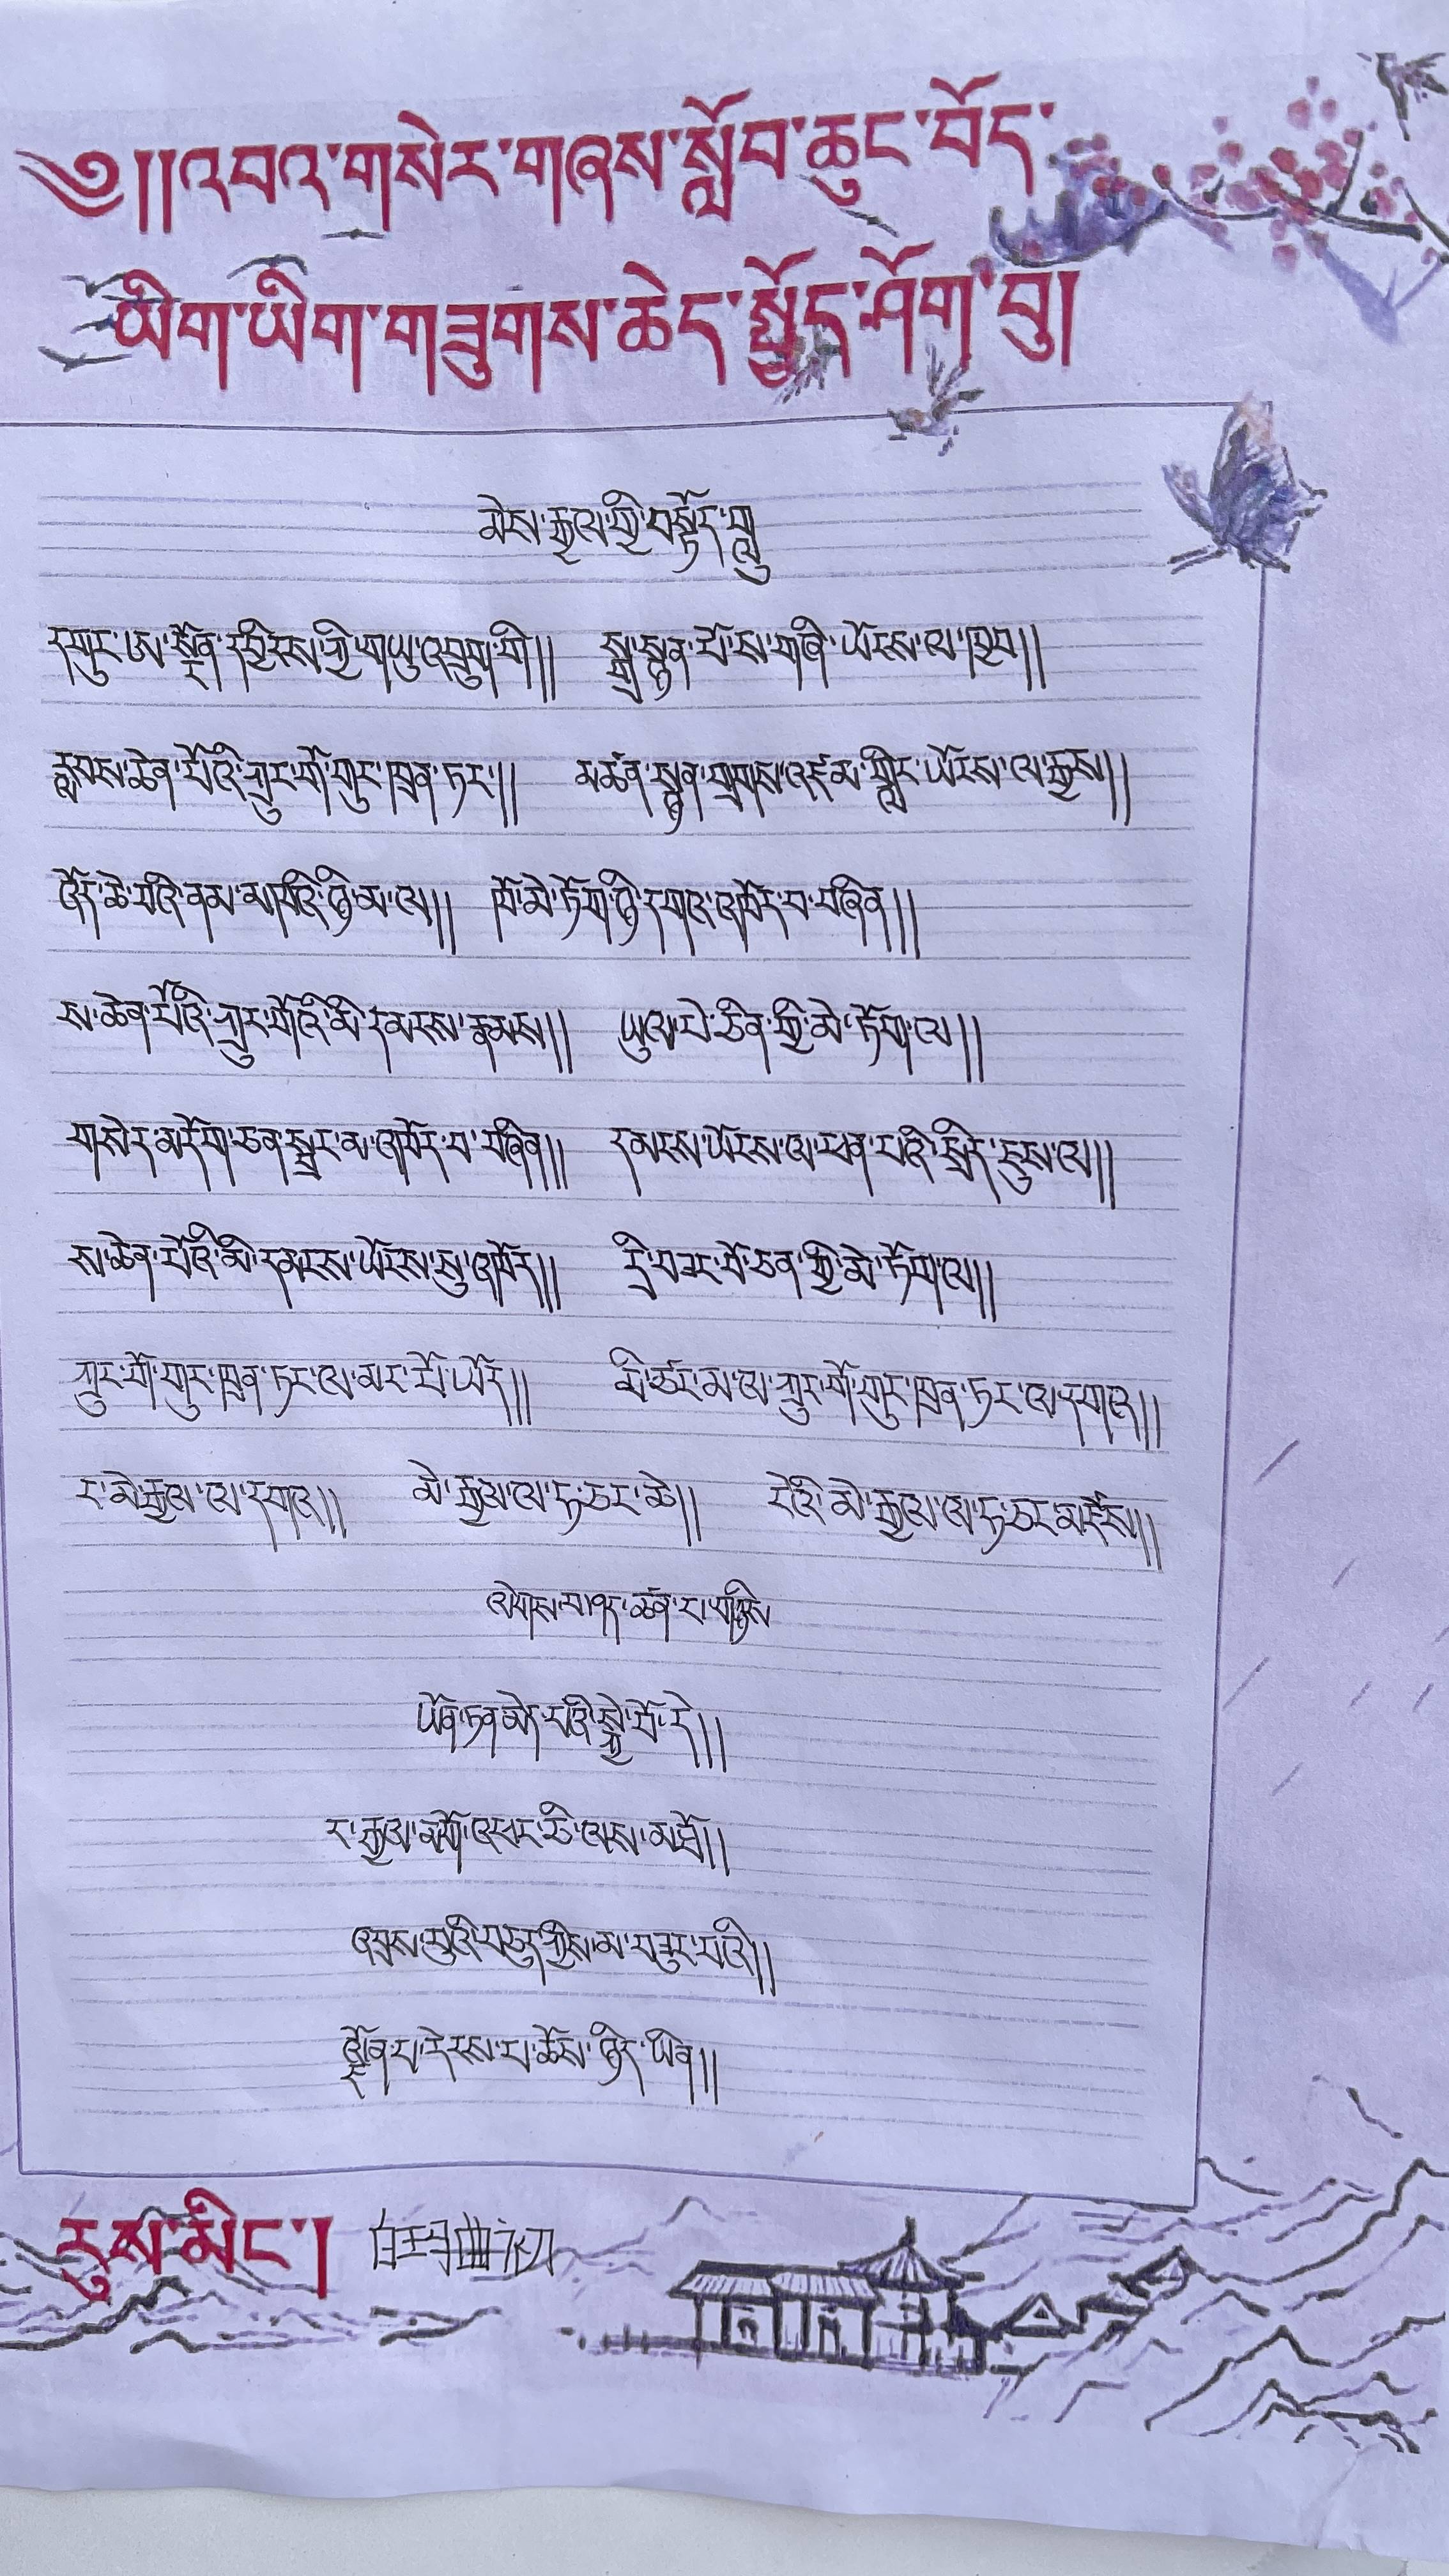 ༄།།འབའ་གསེར་གཞས་སློབ་ཆུང་བོད་
ཡིག་ཡིག་གཟུགས་ཆེད་སྤྱོད་ཤོག་བུ།
མེས་རྒྱལ་གྱི་བསྟོད་གླུ
དགུང་ཨ་སྔོན་དབྱིངས་ཀྱི་གཡུ་འབྲུག་གི།། སྒྲ་སྙན་པོས་གནི་ཡོངས་ལ་ཁྱབ།།
རླབས་ཆེན་པོའི་ཀྲུང་གོ་གུང་ཁྲན་ཏང་།། མཚན་སྙན་གྲགས་འཛམ་གླིང་ཡོངས་ལ་རྒྱས།།
འོད་ཆེ་བའི་ནམ་མཁའི་ཉི་མ་ལ།། ཁོ་མེ་ཏོག་ཉི་དགའ་འཁོར་བ་བཞིན།།
ས་ཆེན་པོའི་ཀྲུང་གོའི་མི་དམངས་རྣམས།། ཡུལ་པེ་ཅིན་གྱི་མེ་ཏོག་ལ།།
གསེར་མདོག་ཅན་སྦྲང་མ་འཁོར་བ་བཞིན།། དམངས་ཡོངས་ལ་ཕན་པའི་སྲིད་ཇུས་ལ།།
ས་ཆེན་པོའི་མི་དམངས་ཡོངས་སུ་འཁོར།། དྲི་བཟང་པོ་ཅན་གྱི་མེ་ཏོག་ལ།།
ཀྲུང་གོ་གུང་ཁྲན་ཏང་ལ་མང་པོ་ཡོད།། མི་ཙང་མ་ལ་ཀྲུང་གོ་གུང་ཁྲན་ཏང་ལ་དགའ།།
ང་མེ་རྒྱལ་ལ་དགའ།། མེ་རྒྱལ་ལ་ཧ་ཅང་ཆེ།། ངའི་མེ་རྒྱལ་ལ་ཧ་ཅང་མཛེས།།
ལེགས་བཤད་ཚན་པ་གཉིས
ཡོན་ཏན་མེད་པའི་སྐྱེ་བོ་དེ།།
ང་རྒྱལ་མགོ་འཕང་ཅི་ལས་མཐོ།།
འབྲས་བུའི་བཅུད་ཀྱིས་མ་བཟུང་བའི།།
ལྗོན་པ་དེངས་པ་ཆོས་ཉིད་ཡིན།།
རུས་མིང་།